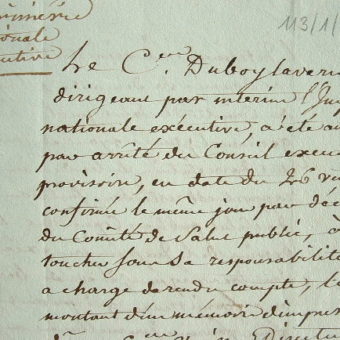 113/1/
rimérie
ionale
cutive
Le C.en Duboylaverne
dirigeant par interim l'Imp
nationale exécutive, a été au
par arrêté du Conseil execu
provisoire, en date du 26 ve
confirmé le même jour par déc
du Comité de Salut public, à
toucher sous sa responsabilité
a charge de rendre compte, le
montant d'un mémoire d'impres